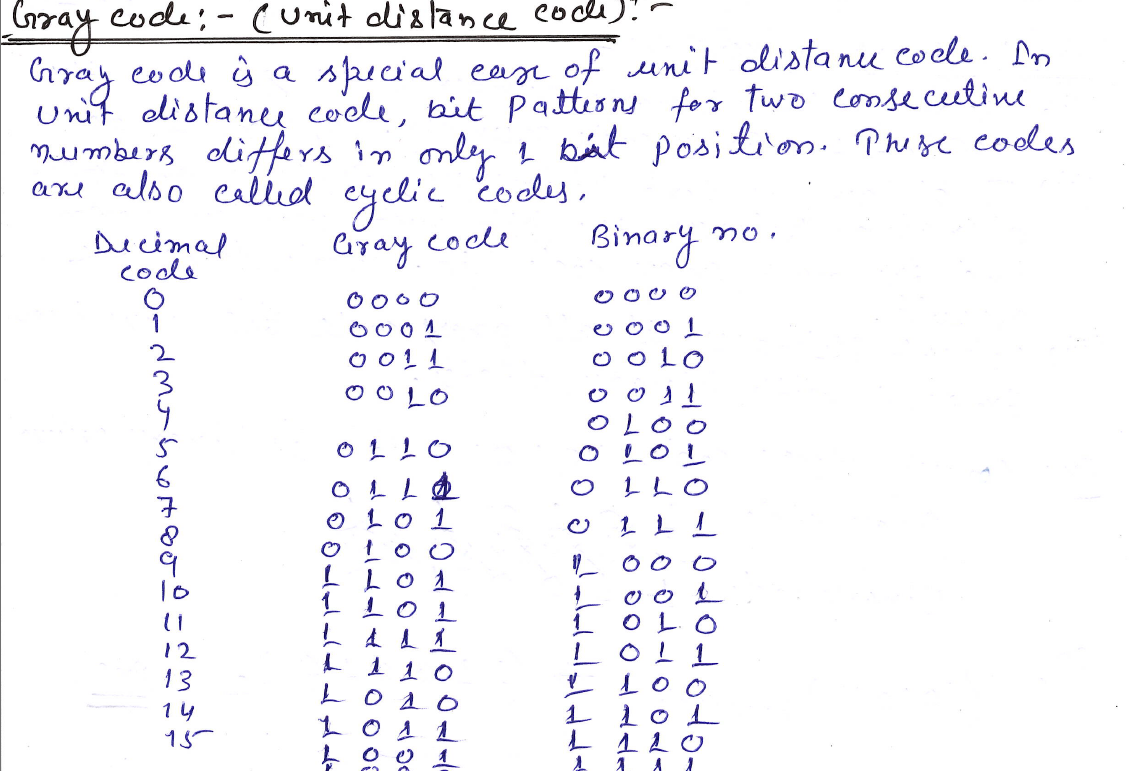 Gray code:- (Unit distance code):-
Gray code is a special case of unit distance code. In
Unit distance code, bit Patterns for two consecutive
numbers differs in only 1 bit position. These codes
are also called cyclic codes.
Decimal code Gray code Binary no.
0 0000 0000
1 0001 0001
2 0011 0010
3 0010 0011
4 0100
5 0110 0101
6 0111 0110
7 0101 0111
8 0100 1000
9 1101 1001
10 1101 1010
11 1111 1011
12 1110 1100
13 1010 1101
14 1011 1110
15 1001